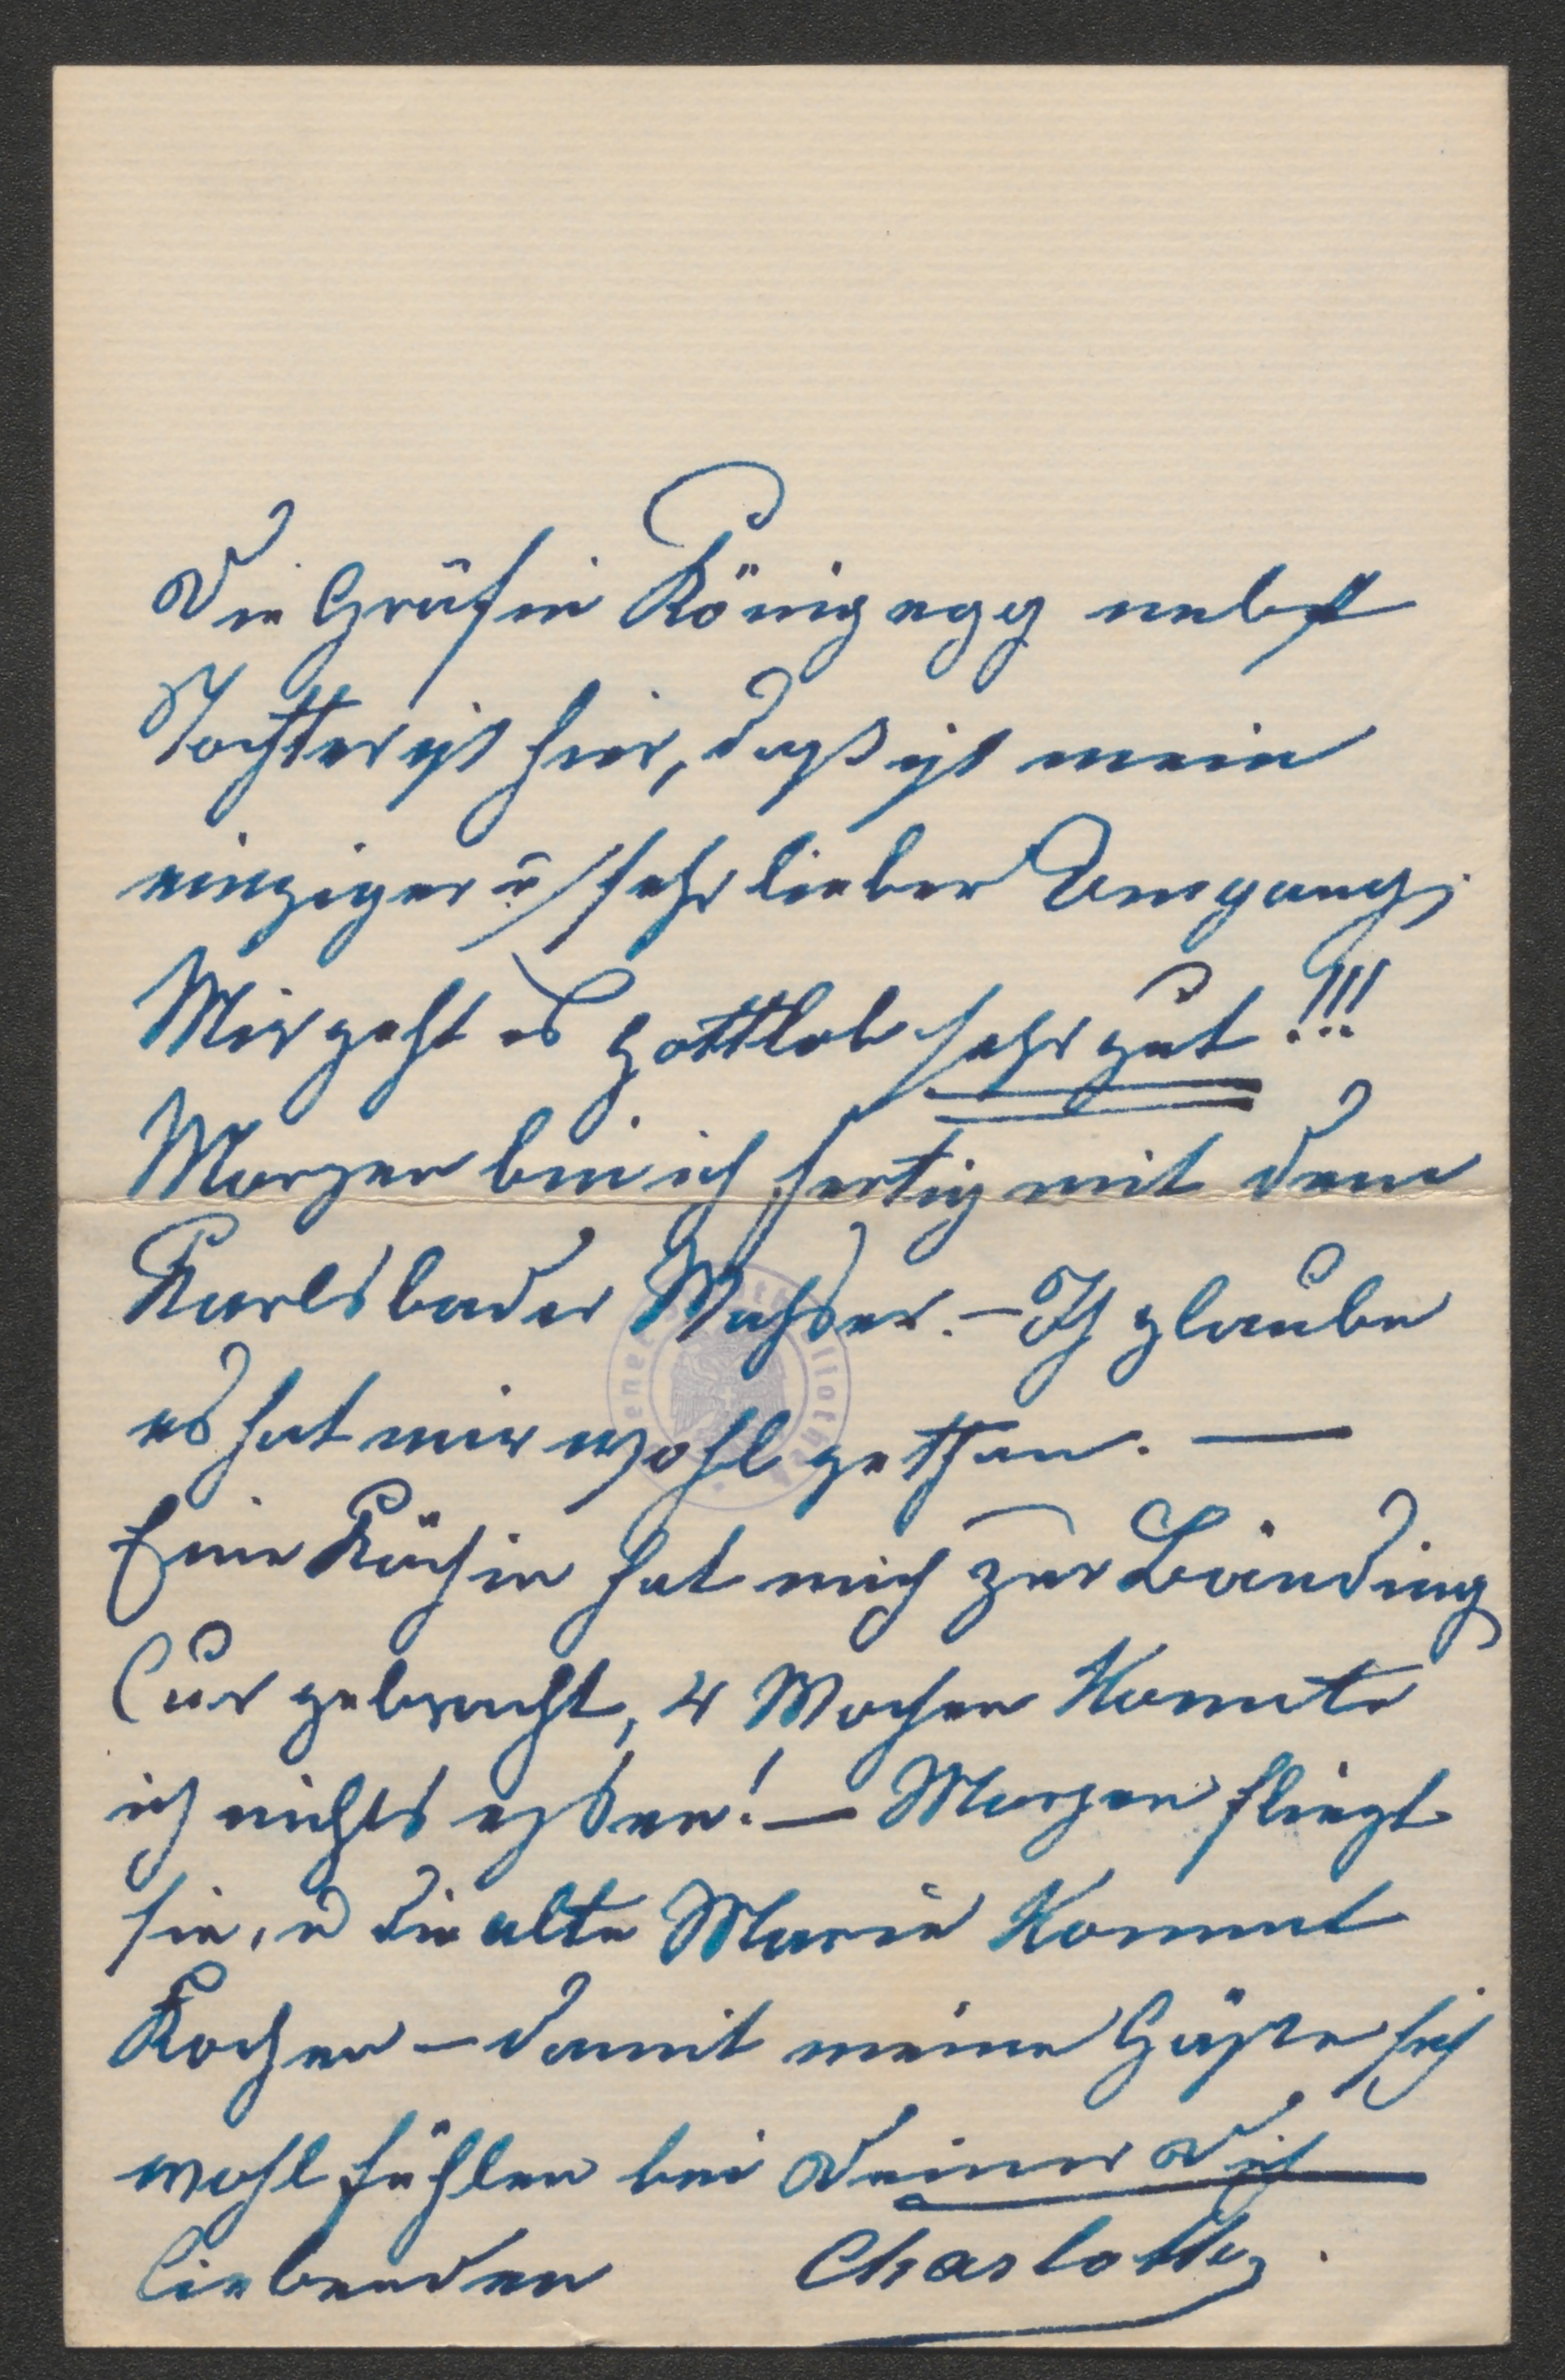 Die Gräfin Königsegg nebst
Tochter ist hier, daß ist mein
einziger u sehr lieber Umgang.
Mir geht es gottlob sehr gut!!!
Morgen bin ich fertig mit dem
Karlsbader Wasser. – Ich glaube
es hat mir wohl gethan. —
Eine Köchin hat mich zur
Cur gebracht, 4 Wochen konnte
ich nichts essen! — Morgen fliegt
sie, u die alte Marie kommt
Kochen – damit meine Gäste sich
wohl fühlen bei Deiner Dich
liebenden Charlotte.